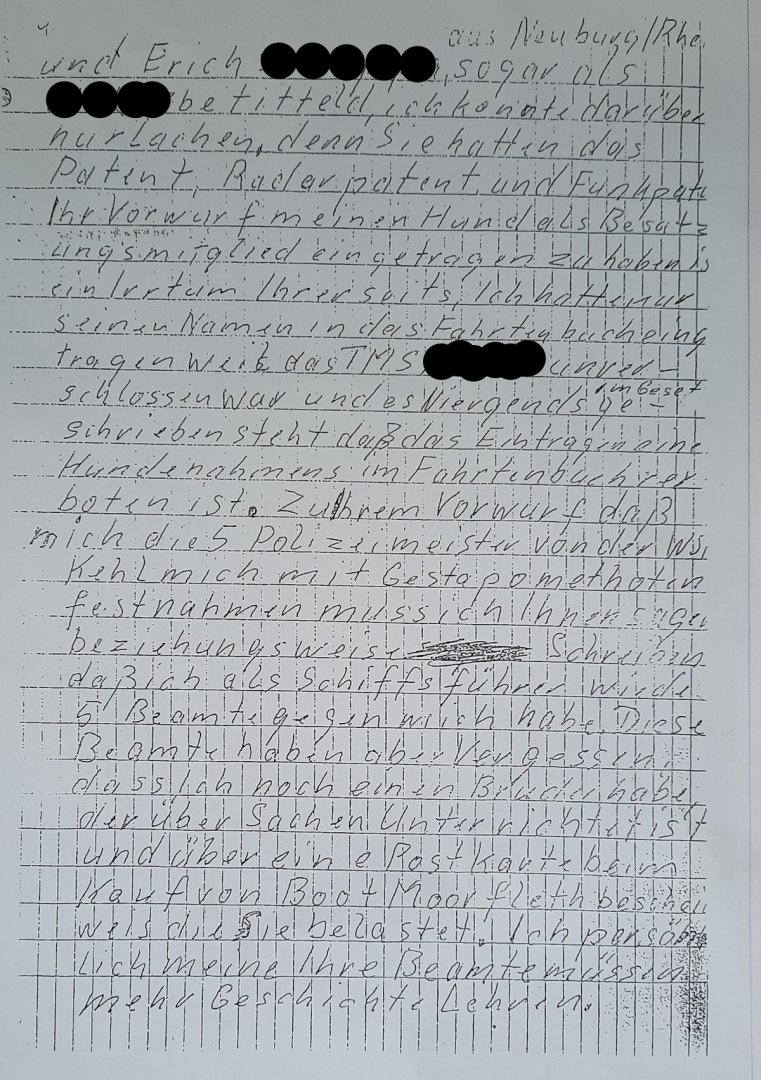 aus Neuburg/Rhe
und Erich , sogar als
betitteld, ich konnte darüber
nur Lachen, denn Sie hatten das
Patent, Radarpatent und Funkpat
Ihr Vorwurf meinen Hund als Besatz
ungsmitglied eingetragen zu haben is
ein Irrtum Ihrerseits, Ich hatte nur
seinen Namen in das Fahrtenbuch eing
tragen weil das TMS unver-
schlossen war und es Niergends ge-
im Geset
schrieben steht daß das Eintragen eine
Hundenahmens im Fahrtenbuch ver
boten ist. Zu Ihrem Vorwurf daß
mich die 5 Polizeimeister von der WS
Kehl mich mit Gestapomethoten
festnahmen muss ich Ihnen sagen
beziehungsweise Schreiben
daß ich als Schiffsführer wieder
5 Beamte gegen mich habe. Diese
Beamte haben aber Vergessen,
dass Ich noch einen Bruder habe,
der über Sachen Unterrichtet ist
und über eine Postkarte beim
Kauf von Boot Moorfleth beschei
weis die Sie belastet. Ich persön
lich meine Ihre Beamte müssen
mehr Geschichte Lehren.